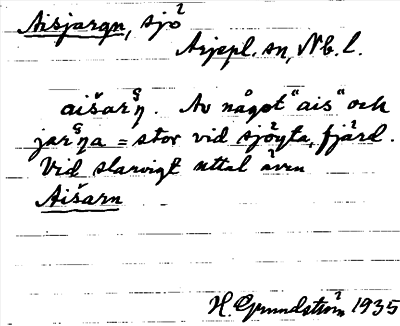 Aisjargn, sjö
Arjepl. sn, Nb. l.
aišarᵍŋ. Av något "ais" och
jarᵍŋa = stor vid sjöyta, fjärd.
Vid slarvigt uttal även
Aišarn
H. Grundström 1935